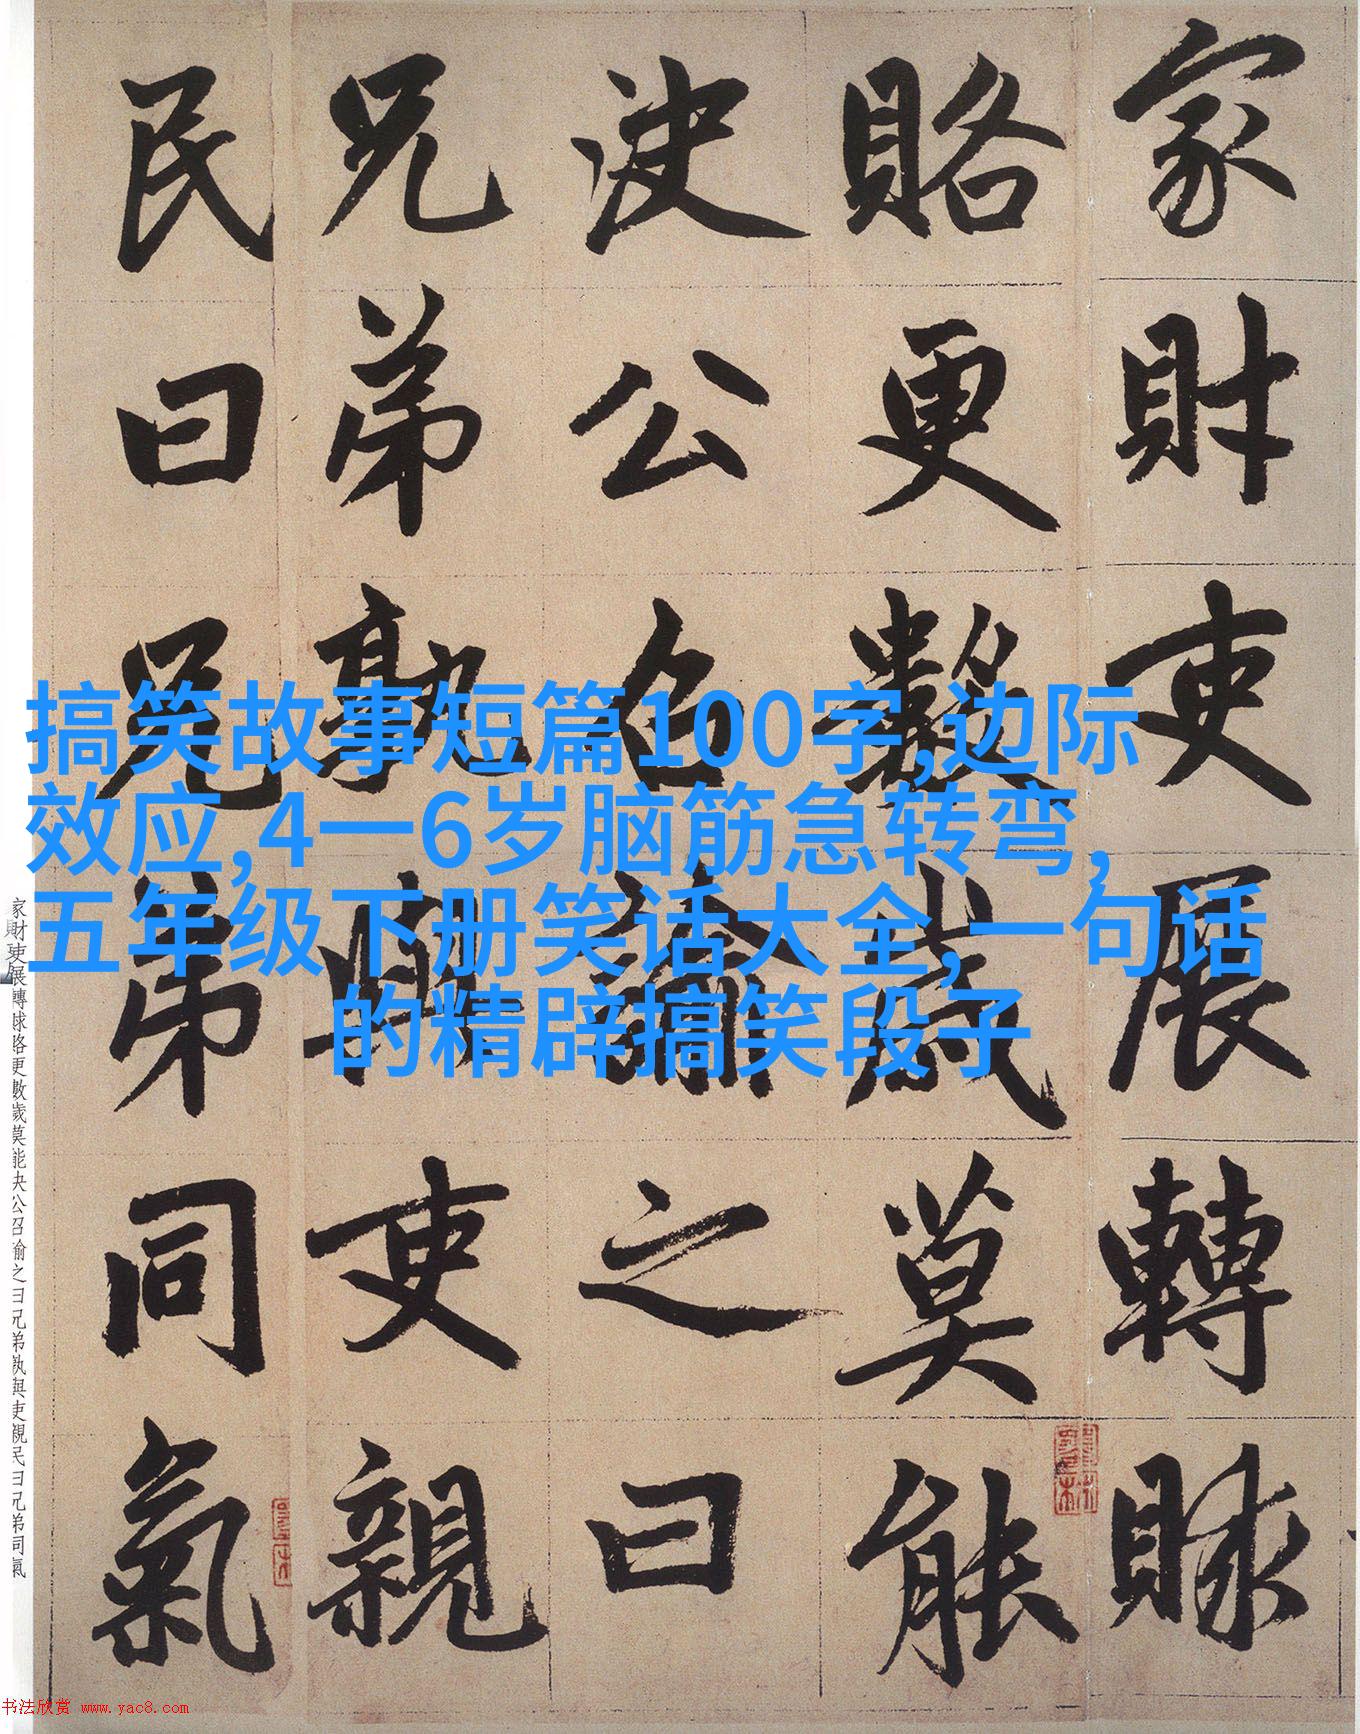 家財吏展轉賕
賂更數歲莫能
決公召諭之曰
兄弟孰與吏親
民曰兄弟同氣
搞笑故事短篇100字,边际
效应,4一6岁脑筋急转弯,
五年级下册笑话大全,一句话
的精辟搞笑段子
家財吏展轉賕賂更數歲莫能決公召諭之曰兄弟孰與吏親民曰兄弟同氣
书法欣赏 www.yac8.com